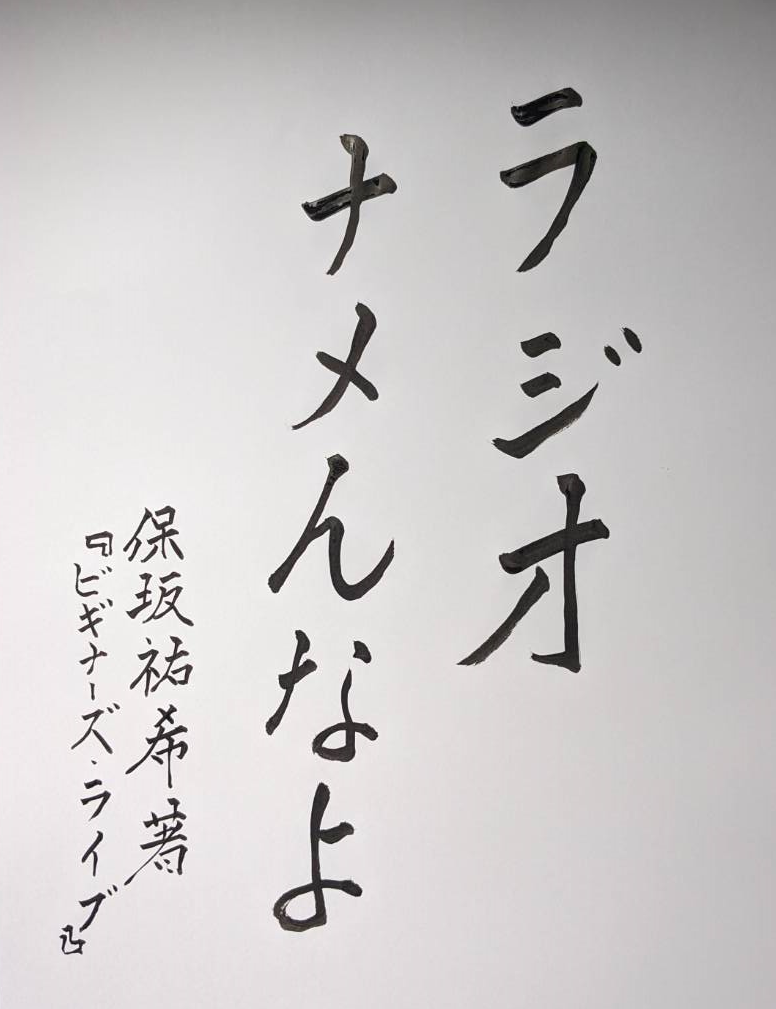 ラジオ
ナメんなよ
保坂祐希著
『ビギナーズ・ライブ』